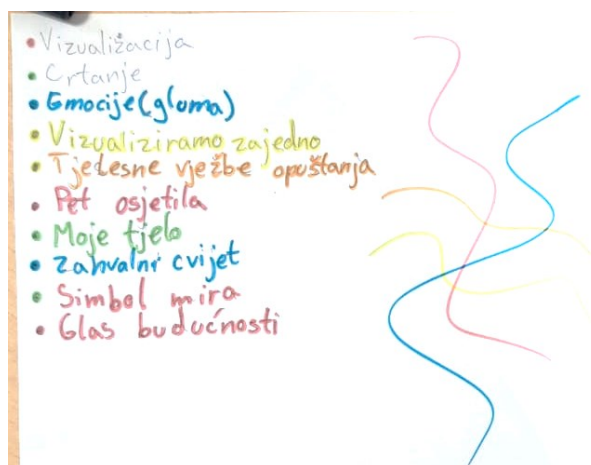 • Vizualižacija
• Crtanje
• Emocije (gluma)
• Vizualiziramo zajedno
• Tjelesne vježbe opuštanja
• Pet osjetila
• Moje tjelo
• Zahvalni cvijet
• Simbol mira
• Glas budućnosti